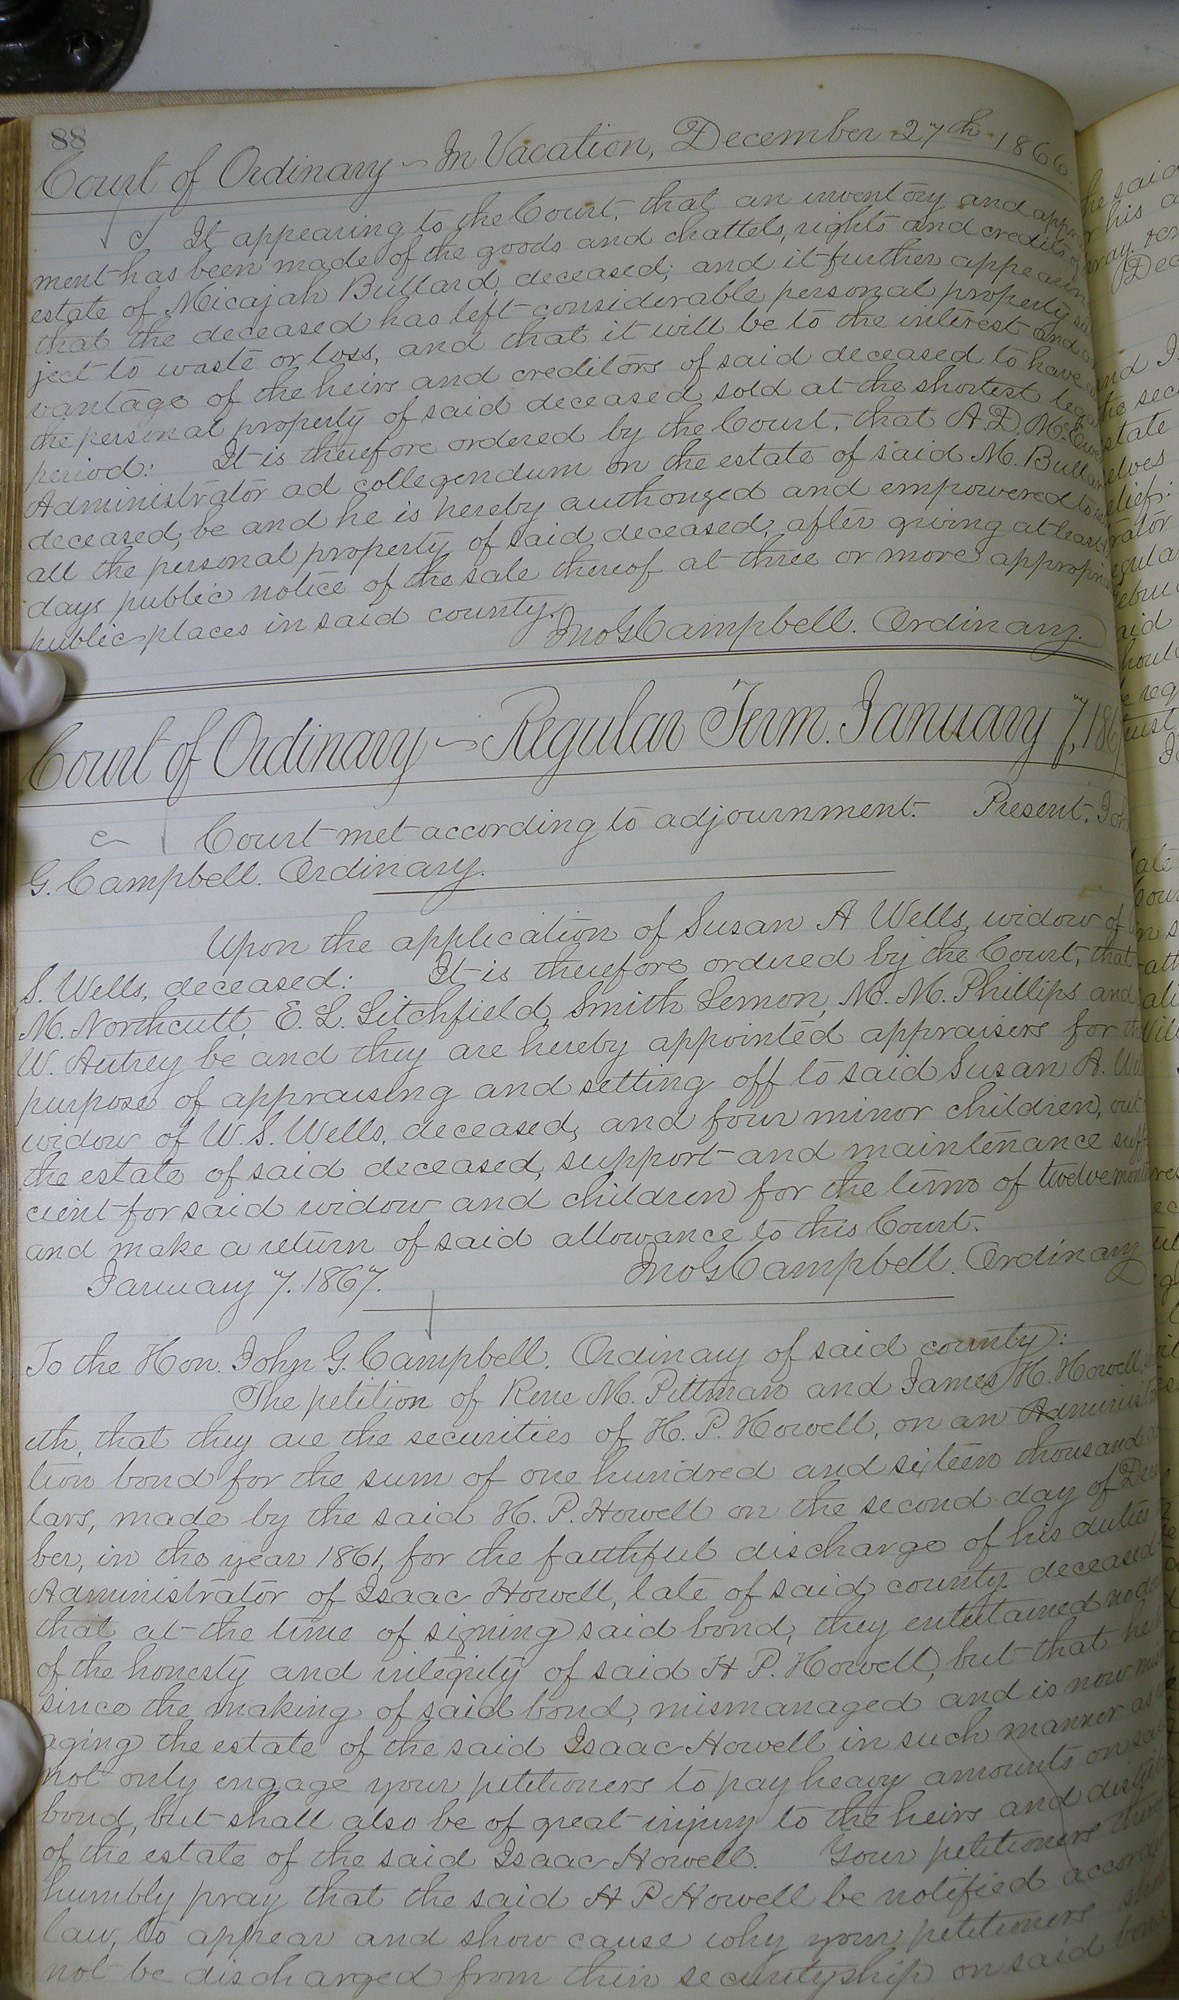 88
Court of Ordinary - In Vacation, December 27th 1866.
It appearing to the Court, that an inventory and
ment has been made of the goods and chattels, rights and credits
estate of Micajah Bullard, deceased; and it further appearin
that the deceased has left considerable personal property
ject to waste or loss, and that it will be to the interest and
vantage of the heirs and creditors of said deceased to have
the personal property of said deceased sold at the shortest legal
period: It is therefore ordered by the Court, that A. D. M.
Administrator ad collegendum on the estate of said M. Bullar
deceased, be and he is hereby authorized and empowered to
all the personal property of said deceased, after giving at least
days public notice of the sale thereof at three or more appropri
public places in said county.
Jno G Campbell. Ordinary.
Court of Ordinary - Regular Term. January 7, 186
Court met according to adjournment. Present, Joh
G. Campbell. Ordinary.
Upon the application of Susan A Wells, widow of
S. Wells, deceased: It is therefore ordered by the Court, that
M. Northcutt, E. L. Litchfield, Smith Lemon, M. M. Phillips and
W. Autrey be and they are hereby appointed appraisers for the
purpose of appraising and setting off to said Susan A. We
widow of W. S. Wells, deceased, and four minor children, out
the estate of said deceased, support and maintenance suffi
cient for said widow and children for the term of twelve months
and make a return of said allowance to this Court.
January 7. 1867. Jno G Campbell. Ordinary
To the Hon. John G. Campbell. Ordinary of said county:
The petition of Rene M. Pittman and James H. Howell,
eth, that they are the securities of H. P. Howell, on an Administra
tion bond for the sum of one hundred and sixteen thousand
lars, made by the said H. P. Howell on the second day of Decem
ber, in the year 1861, for the faithful discharge of his duties
Administrator of Isaac Howell, late of said county deceased
that at the time of signing said bond, they entertained no
of the honesty and integrity of said H P. Howell, but that he
since the making of said bond, mismanaged and is now
aging the estate of the said Isaac Howell in such manner as
not only engage your petitioners to pay heavy amounts on said
bond, but shall also be of great injury to the heirs and
of the estate of the said Isaac Howell. Your petitioners
humbly pray that the said H P Howell be notified
law, to appear and show cause why your petitioners
not be discharged from their securityship on said bond